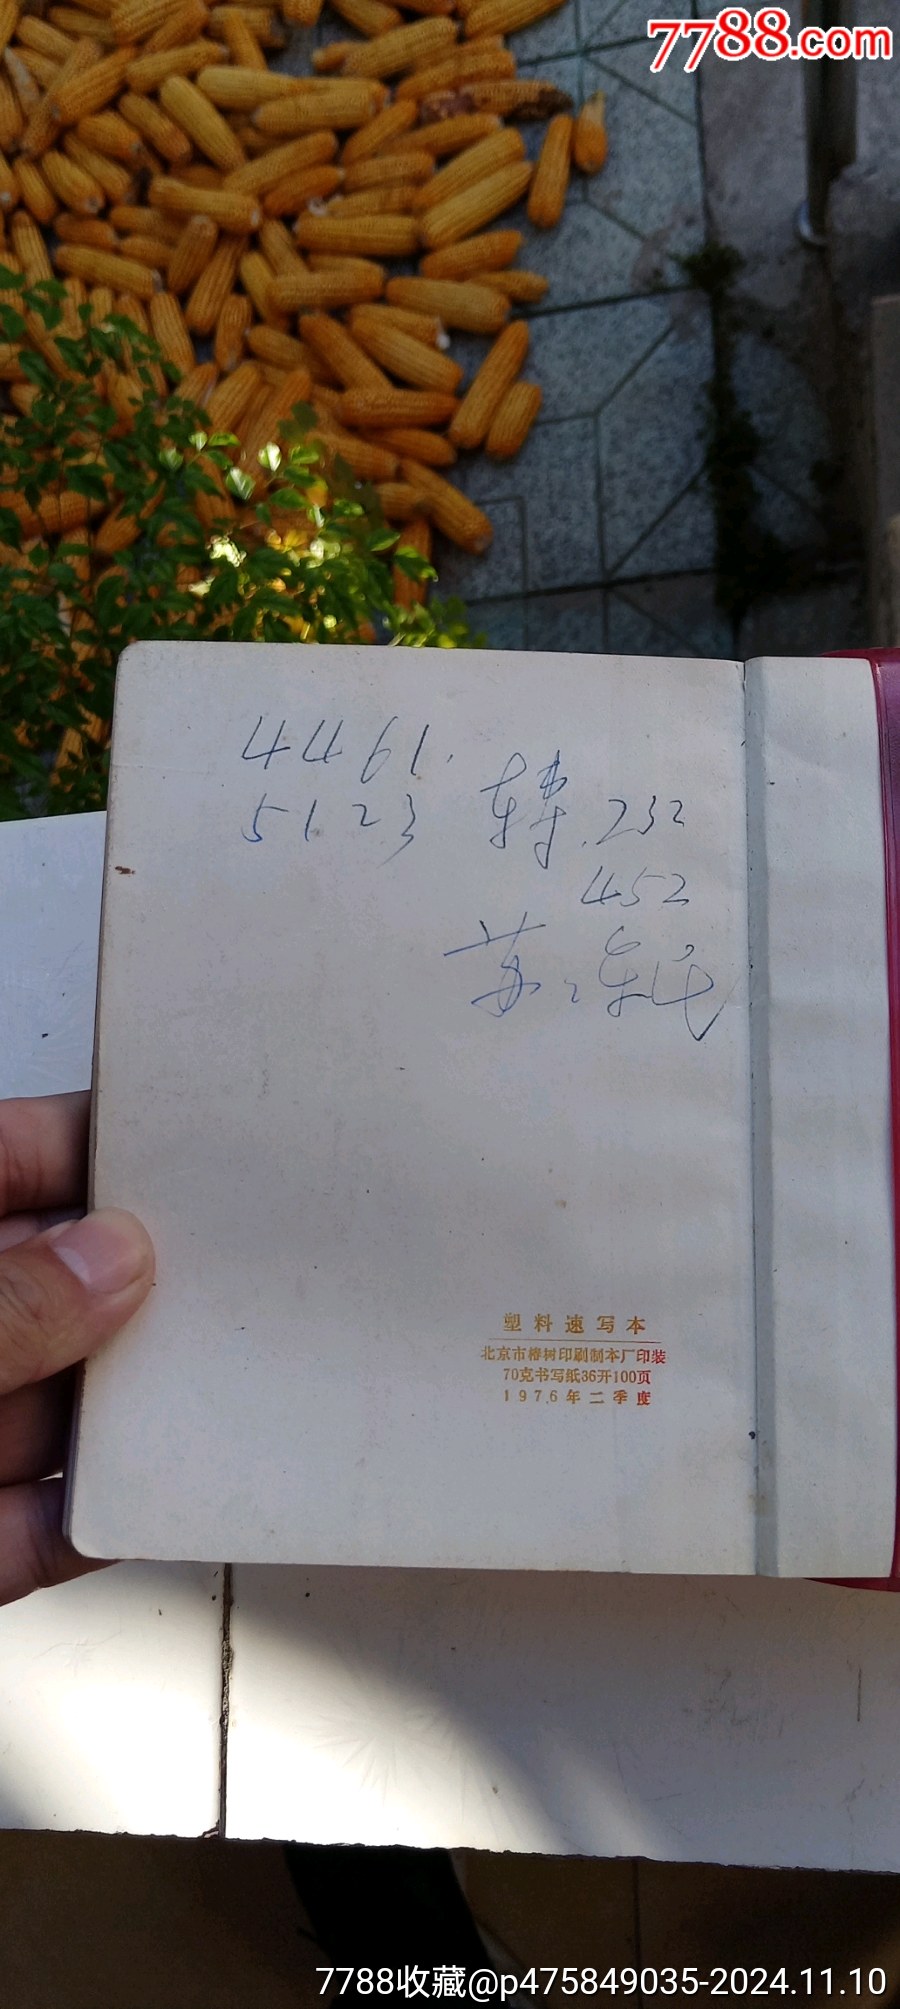 7788.com
4461.
5123 转.232
452
苏
塑料速写本
北京市椿树印刷制本厂印装
70克书写纸36开100页
1976年二季度
7788收藏@p475849035-2024.11.10